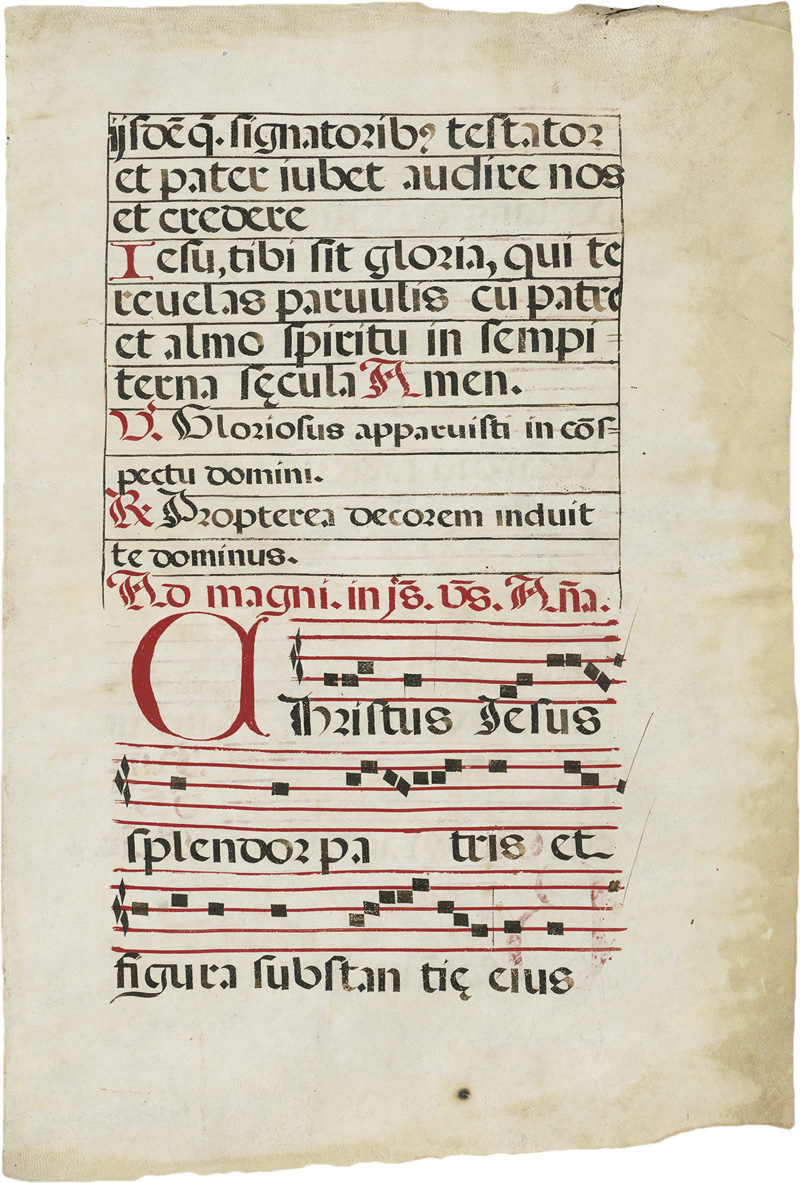 ijsdē q̄. signatoribꝰ testator
et pater iubet audire nos
et credere
Iesu, tibi sit gloria, qui te
reuelas paruulis cu patre
et almo spiritu in sempi=
terna sęcula Amen.
V. Gloriosus apparuisti in cōs=
pectu domini.
R Propterea decorem induit
te dominus.
Ad magni. in js̄. vs̄. Añа.
Christus Iesus
splendor pa tris et
figura substan tię eius